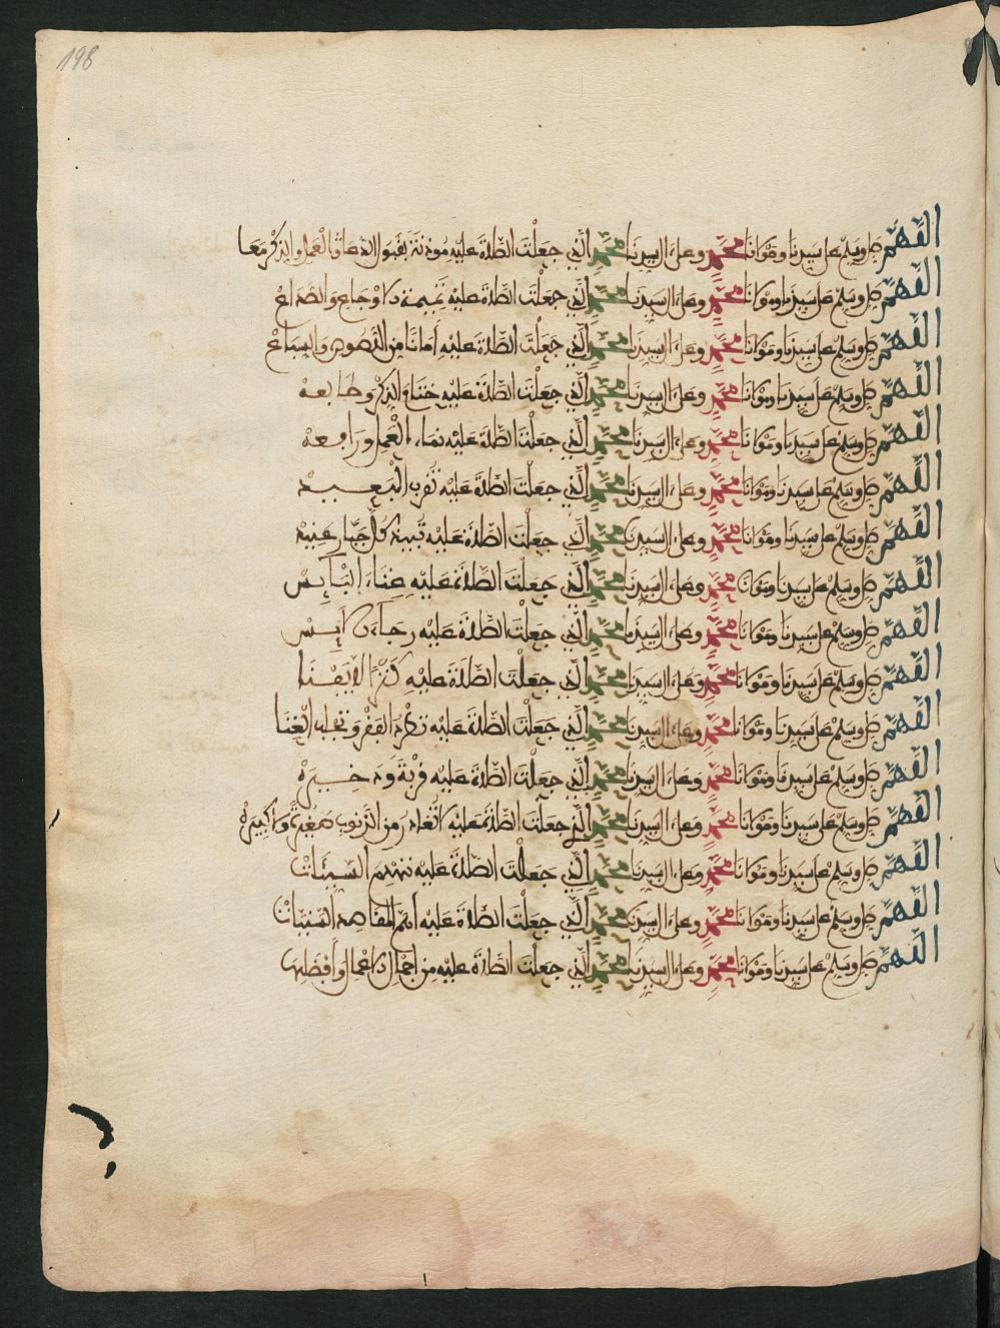 198
اللهم صل وسلم على سيدنا ومولانا محمد وعلى ءال سيدنا محمد الذي جعلت الصلاة عليه موذنة بقبول الدعا والعمل والذكر معا
اللهم صل وسلم على سيدنا ومولانا محمد وعلى ءال سيدنا محمد الذي جعلت الصلاة عليه تميمة للاوجاع والصداع
اللهم صل وسلم على سيدنا ومولانا محمد وعلى ءال سيدنا محمد الذي جعلت الصلاة عليه أمانا من اللصوص والسباع
اللهم صل وسلم على سيدنا ومولانا محمد وعلى ءال سيدنا محمد الذي جعلت الصلاة عليه ختام الذكر وطابعه
اللهم صل وسلم على سيدنا ومولانا محمد وعلى ءال سيدنا محمد الذي جعلت الصلاة عليه نماء العمل ورافعه
اللهم صل وسلم على سيدنا ومولانا محمد وعلى ءال سيدنا محمد الذي جعلت الصلاة عليه تقرب البعيد
اللهم صل وسلم على سيدنا ومولانا محمد وعلى ءال سيدنا محمد الذي جعلت الصلاة عليه تبيد كل جبار عنيد
اللهم صل وسلم على سيدنا ومولانا محمد وعلى ءال سيدنا محمد الذي جعلت الصلاة عليه غناء البايس
اللهم صل وسلم على سيدنا ومولانا محمد وعلى ءال سيدنا محمد الذي جعلت الصلاة عليه رجاء الايس
اللهم صل وسلم على سيدنا ومولانا محمد وعلى ءال سيدنا محمد الذي جعلت الصلاة عليه كنزا لا يفنا
اللهم صل وسلم على سيدنا ومولانا محمد وعلى ءال سيدنا محمد الذي جعلت الصلاة عليه تطرد الفقر وتجلب الغنا
اللهم صل وسلم على سيدنا ومولانا محمد وعلى ءال سيدنا محمد الذي جعلت الصلاة عليه قربة وذخيرة
اللهم صل وسلم على سيدنا ومولانا محمد وعلى ءال سيدنا محمد الذي جعلت الصلاة عليه لا تغادر من الذنوب صغيرة ولا كبيرة
اللهم صل وسلم على سيدنا ومولانا محمد وعلى ءال سيدنا محمد الذي جعلت الصلاة عليه تهدم السيئات
اللهم صل وسلم على سيدنا ومولانا محمد وعلى ءال سيدنا محمد الذي جعلت الصلاة عليه أتم المقاصد السنيات
اللهم صل وسلم على سيدنا ومولانا محمد وعلى ءال سيدنا محمد الذي جعلت الصلاة عليه من اجمل الاعمال وأفضلها